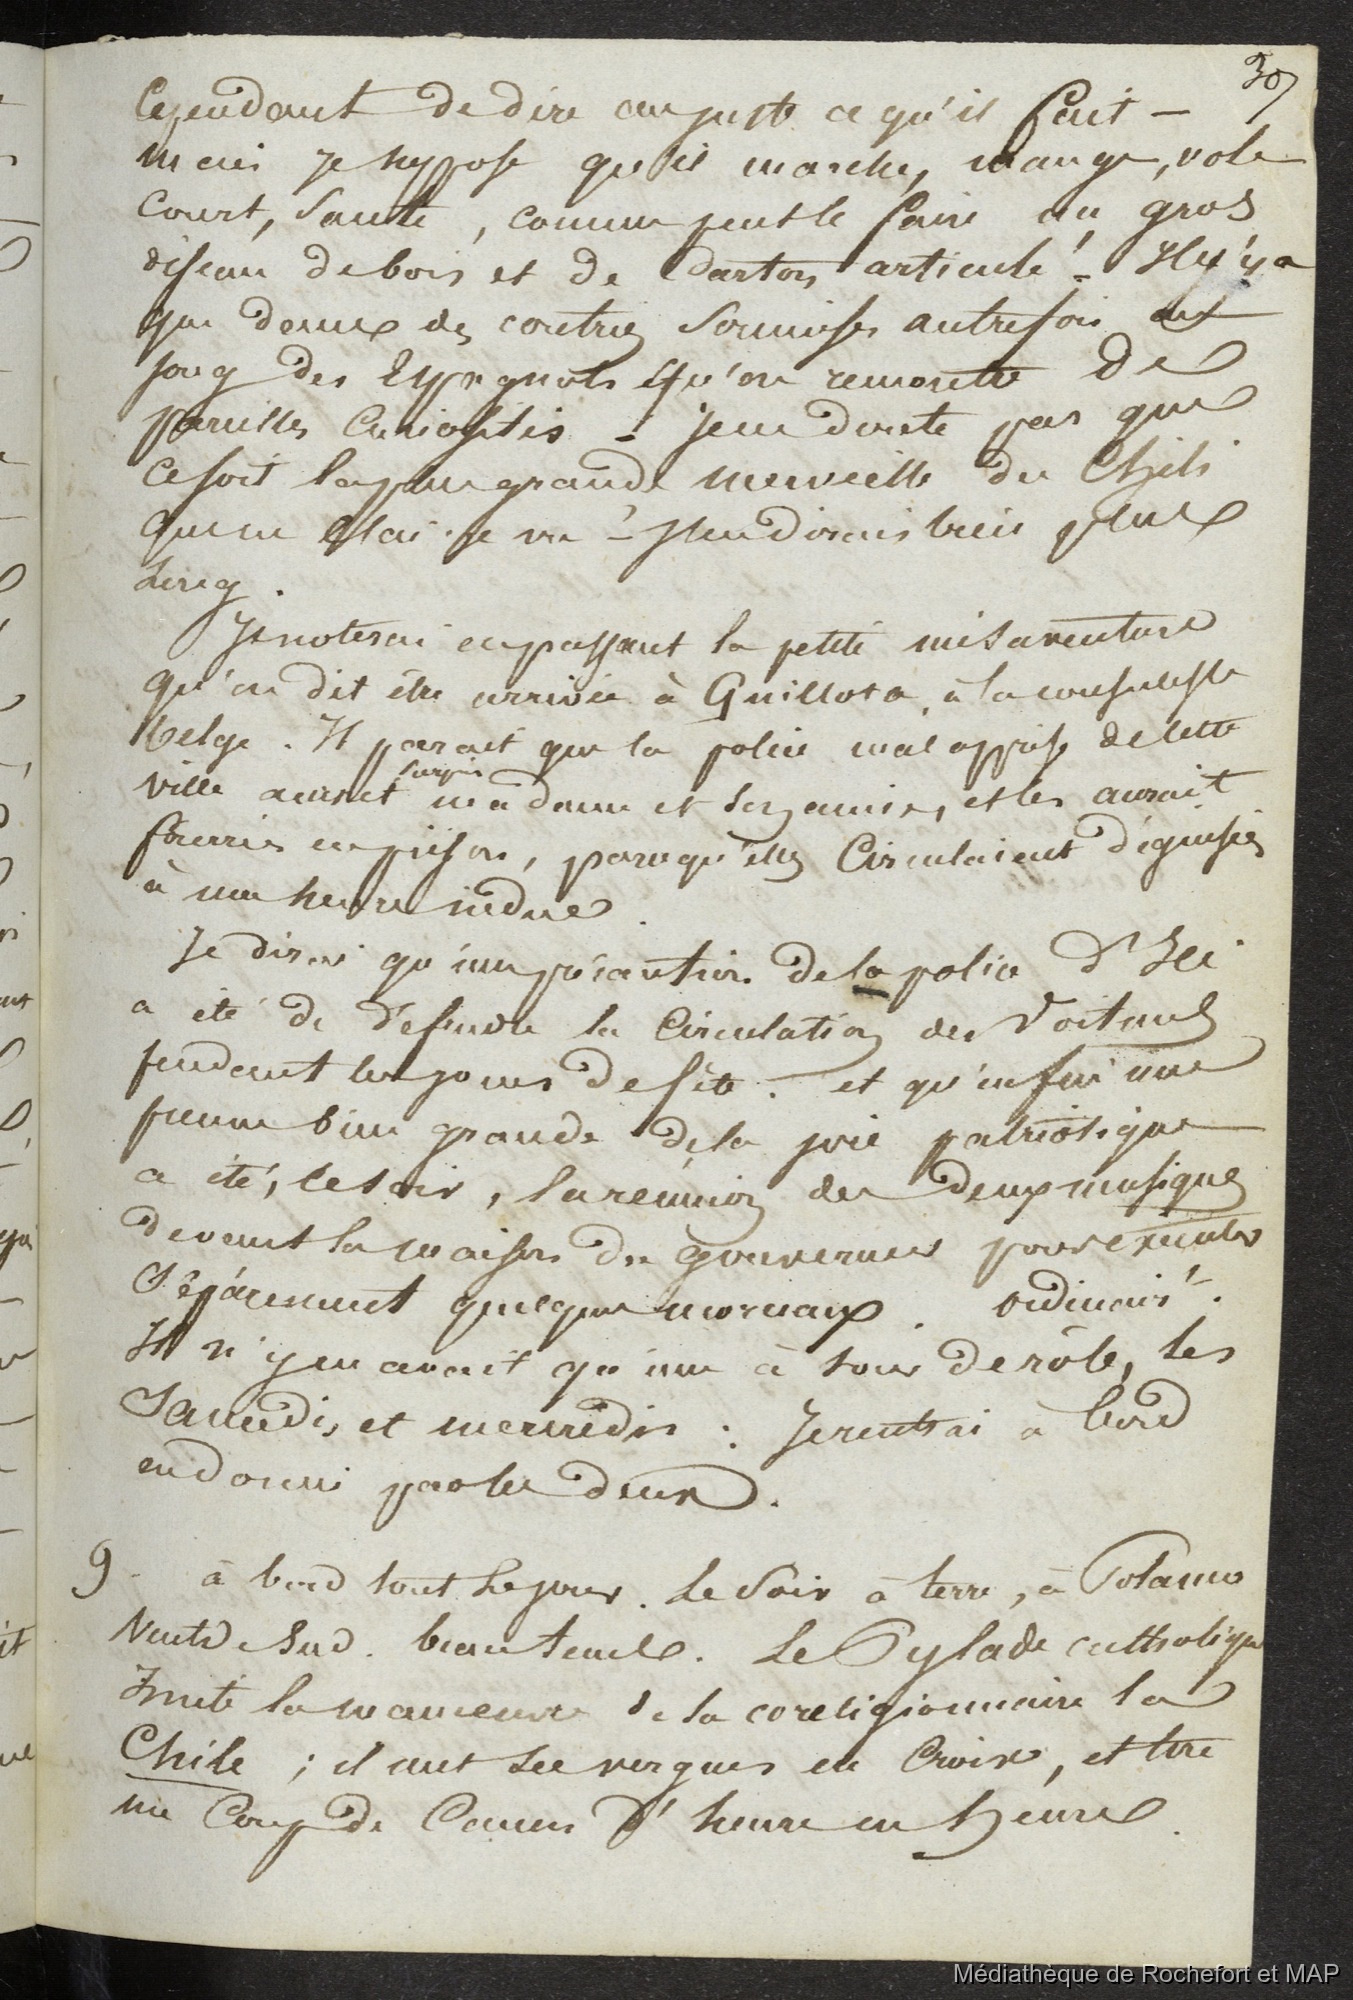 307
Cependant de dire au juste ce qu'il fait –
mais je suppose qu'il marche, mange, vole
court, saute, comme peut le faire un gros
oiseau de bois et de carton articulé. – Il n'y a
que dans des contrées soumises autrefois au
joug des Espagnols qu'on rencontre de
pareilles curiosités – je ne doute pas que
ce soit la plus grande merveille du Chili
que ne l'ai-je vu – j'en dirais bien plus
long.
Je noterai en passant la petite mésaventure
qu'on dit être arrivée à Quillota, à la consulesse
belge. Il parait que la police mal apprise de cette
ville aurait surpris madame et ses amies, et les aurait
fourrées en prison, parce qu'elles circulaient déguisées
à une heure indue.
Je dirai qu'une précaution de la police d'ici
a été de défendre la circulation des voitures
pendant les jours de fête. – et qu'enfin une
preuve bien grande de la joie patriotique
a été, le soir, la réunion des deux musiques
devant la maison du gouverneur pour exécuter
séparement quelques morceaux. ordinairt.
Il n'y en avait qu'une à tour de rôle, les
Samedis et mercredis : Je rentrai à bord
endormi par les deux.
9 – à bord tout le jour. Le soir à terre, à Polanco
Vent de Sud. beau temps. Le Pylade catholique
Imite la manœuvre de la coreligionnaire la
Chile ; il met ses vergues en croix, et tire
un coup de canon d'heure en heure.
Médiathèque de Rochefort et MAP